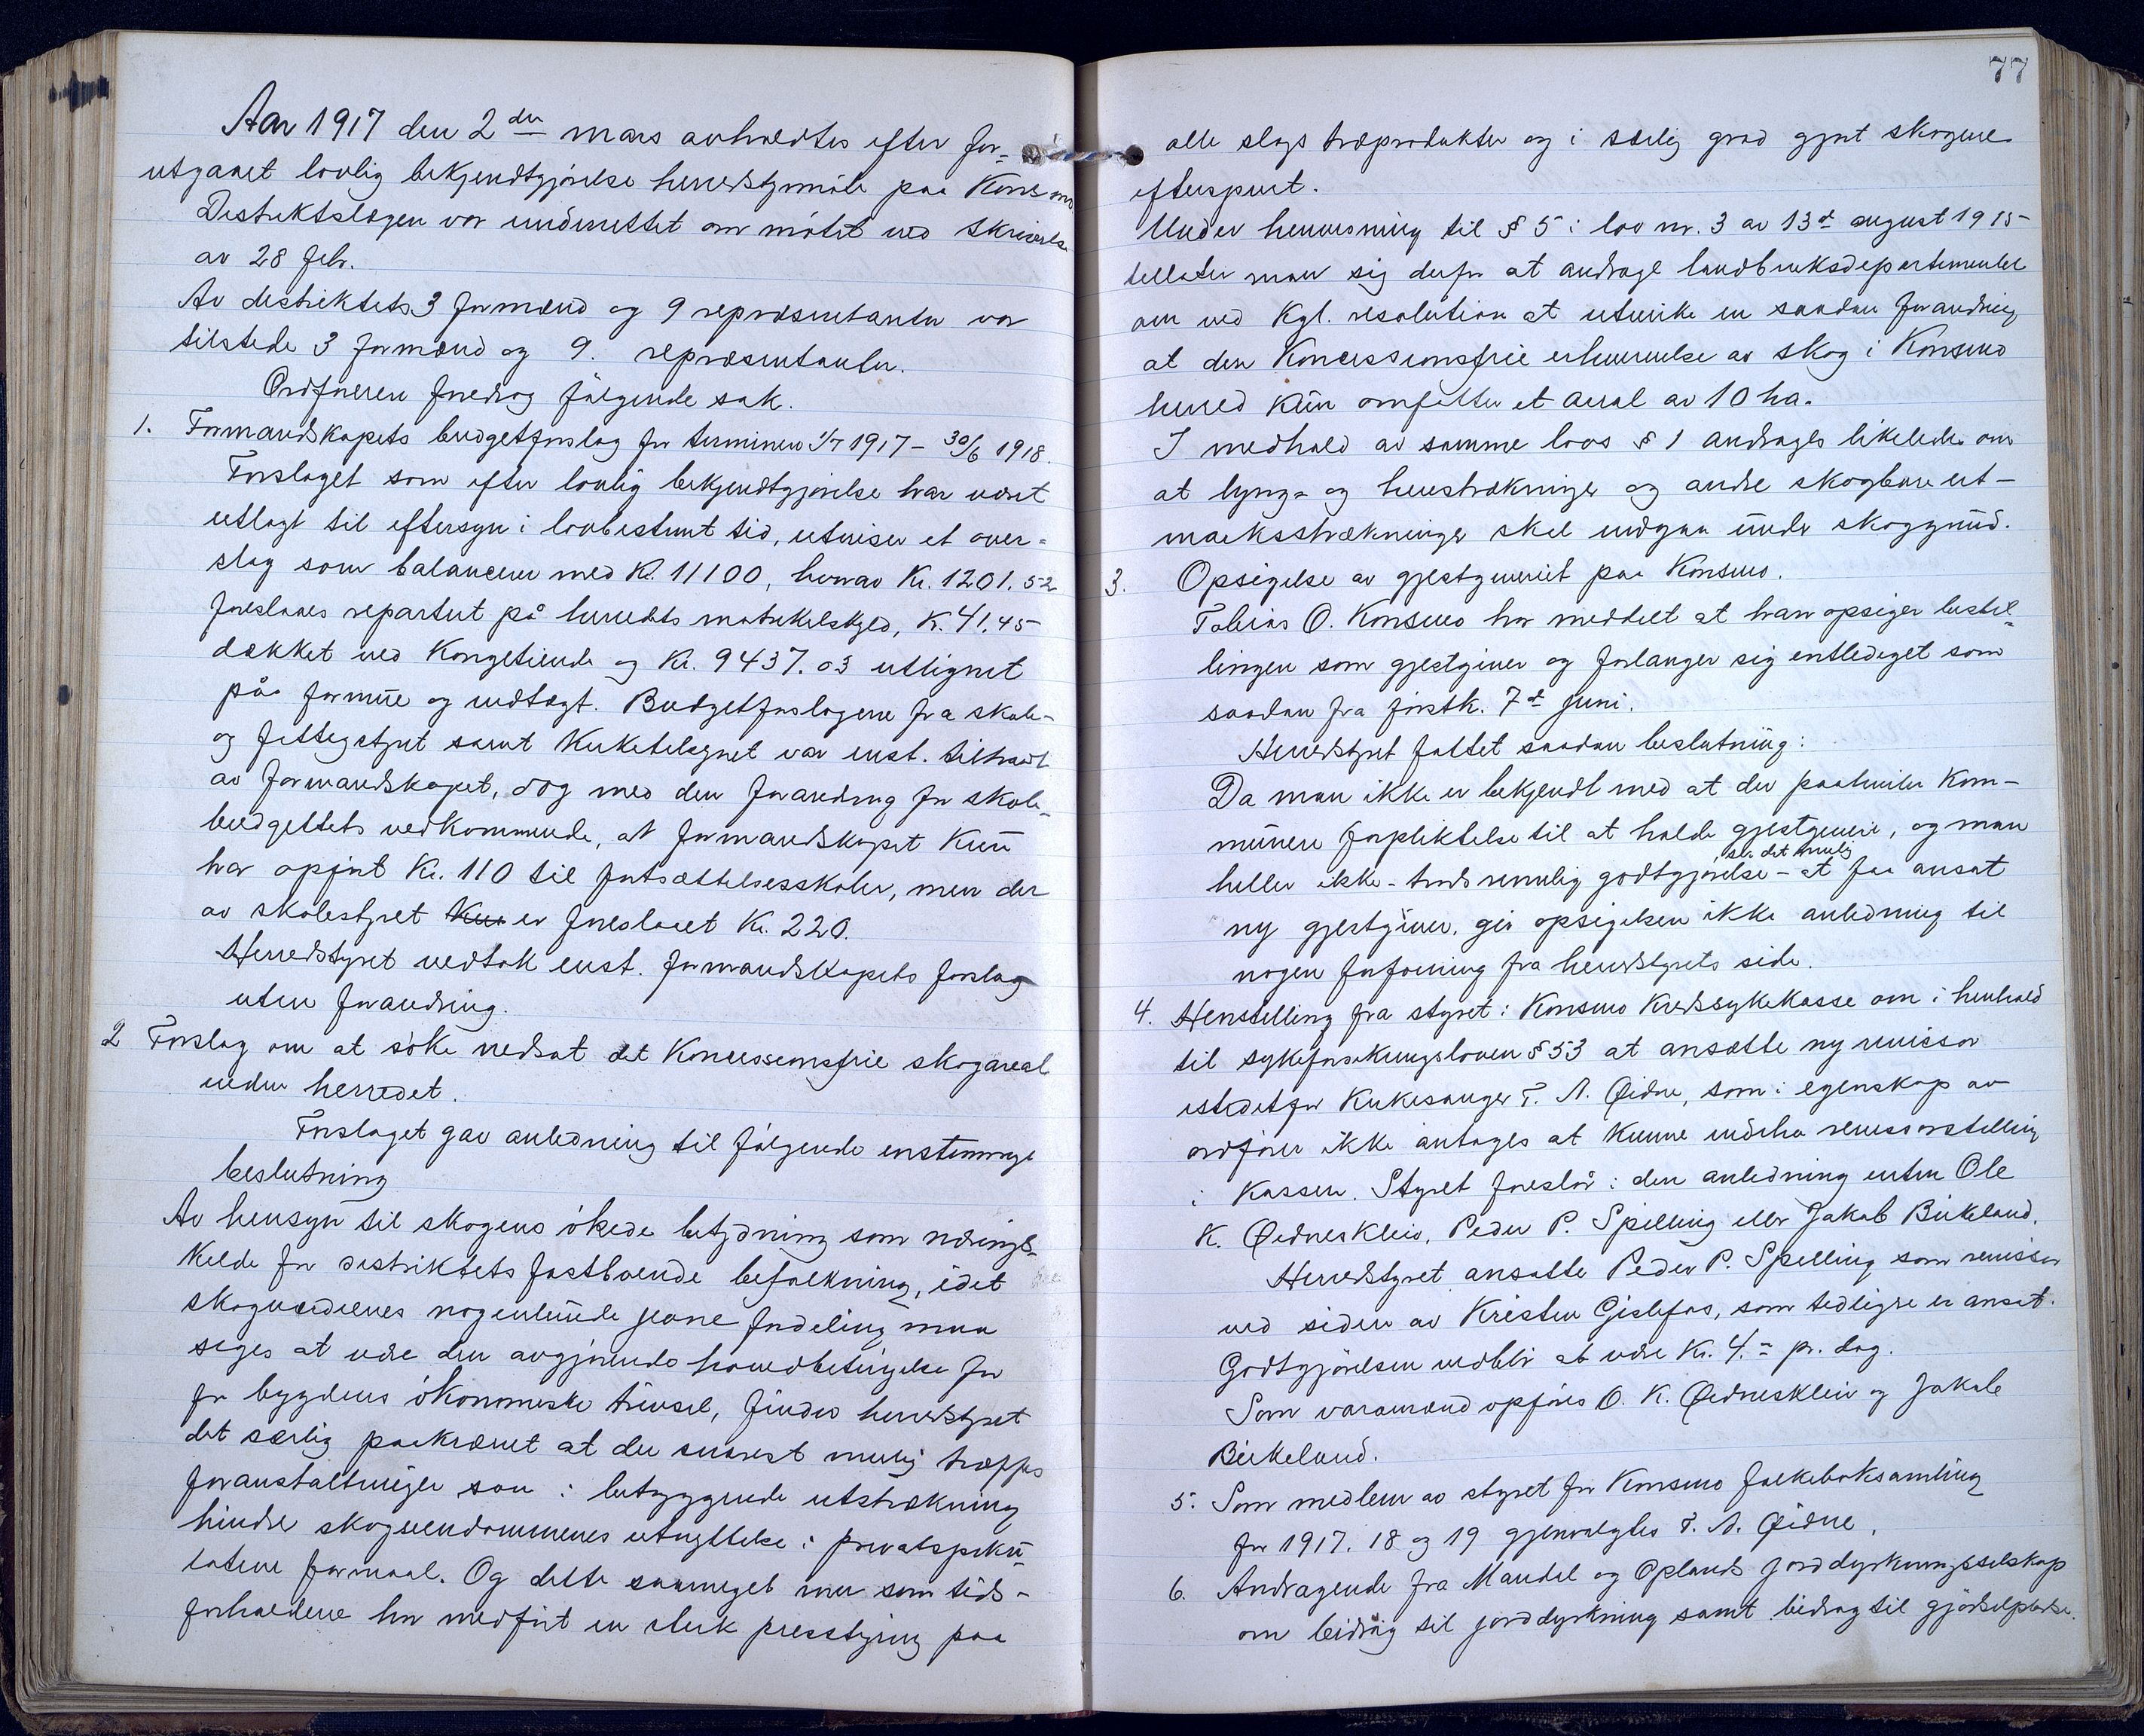 Aar 1917 den 2den mars avholdtes efter for-
utgaaet lovlig bekjendtgjørelse herredstyrmöte paa Konsmo
Distriktslægen var underrettet om mötet ved skrivelse
av 28 febr.
Av distriktets 3 formænd og 9 repræsentanter var
tilstede 3 formænd og 9. repræsentanter.
Ordføreren foredrog fölgende sak.
1. Formandskapets budgetforslag for terminen 1/7 1917 - 30/6 1918.
Forslaget som efter lovlig bekjendtgjörelse har været
utlagt til eftersyn i lovbestemt tid, utviser et over-
slag som balancerer med Kr. 11100, hvorav Kr. 1201.52
foreslaaes repartert på herredets matrikelskyld, Kr. 41.45
dækket ved Kongetiende og Kr. 9437.03 utlignet
på formue og indtægt. Budgetforslagene fra skole-
og fattigstyret samt Kirketilsynet var enst. tiltraadt
av formandskapet, dog med den forandring for skole-
budgettets vedkommende, at formandskapet kun
har opført Kr. 110 til fortsættelsesskoler, men der
av skolestyret kun er foreslaaet Kr. 220.
Herredstyret vedtok enst. formandskapets forslag
uten forandring.
2 Forslag om at söke nedsat det Koncessionsfrie skogareal
inden herredet.
Forslaget gav anledning til fölgende enstemmige
beslutning
Av hensyn til skogens ökede betydning som nærings-
kilde for distriktets fastboende befolkning, idet
skogværdienes nogenlunde jevne fordeling maa
siges at være den avgjørende hovedbetingelse for
for bygdens ökonomiske trivsel, finder herredstyret
det særlig paakrævet at der snarest mulig træffes
foranstaltninger som i betryggende utstrækning
hindre skogeiendommenes utnyttelse i privatspeku-
lative formaal. Og dette saameget mer som tids-
forholdene har medfört en sterk presstigning paa
77
alle slags træprodukter og i særlig grad gjort skogene
efterspurt.
Under henvisning til § 5 i lov nr. 3 av 13de august 1915
tillater man sig derfor at andrage landbruksdepartementet
om ved Kgl. resolution at utvirke en saadan forandring
at den Koncessionsfrie erhvervelse av skog i Konsmo
herred kun omfatter et areal av 10 ha.
I medhold av samme lovs § 1 andrages likeledes om
at lyng- og heistrækninger og andre skogbare ut-
marksstrækninger skal indgaa under skoggrund.
3. Opsigelse av gjestgiveriet paa Konsmo.
Tobias O. Konsmo har meddelt at han opsiger bestil-
lingen som gjestgiver og forlanger sig entlediget som
saadan fra förstk. 7de juni.
Herredstyret fattet saadan beslutning:
Da man ikke er bekjendt med at der paahviler kom-
munen forpliktelse til at holde gjestgiveri, og man
heller ikke - trods rimelig godtgjørelse - ser det mulig at faa ansat
ny gjestgiver, gir opsigelsen ikke anledning til
nogen forföining fra herredstyrets side.
4. Henstilling fra styret i Konsmo Kredssykekasse om i henhold
til sykeforsikringsloven § 53 at ansætte ny revisor
istedetfor Kirkesanger T. A. Øidne, som i egenskap av
ordfører ikke antages at kunne indeha revisorstilling
i Kassen. Styret foreslår i den anledning enten Ole
K. Øidneskleiv, Peder P. Spilling eller Jakob Birkeland.
Herredstyret ansatte Peder P. Spilling som revisor
ved siden av Kristen Gislefos, som tidligere er ansat.
Godtgjörelsen vedblir at være Kr. 4.- pr. dag.
Som varamænd opføres O. K. Øidneskleiv og Jakob
Birkeland.
5. Som medlem av styret for Konsmo folkeboksamling
for 1917. 18 og 19 gjenvalgtes T. A. Øidne.
6. Andragende fra Mandal og Oplands jorddyrkningsselskap
om bidrag til jorddyrkning samt bidrag til gjødselpladse.